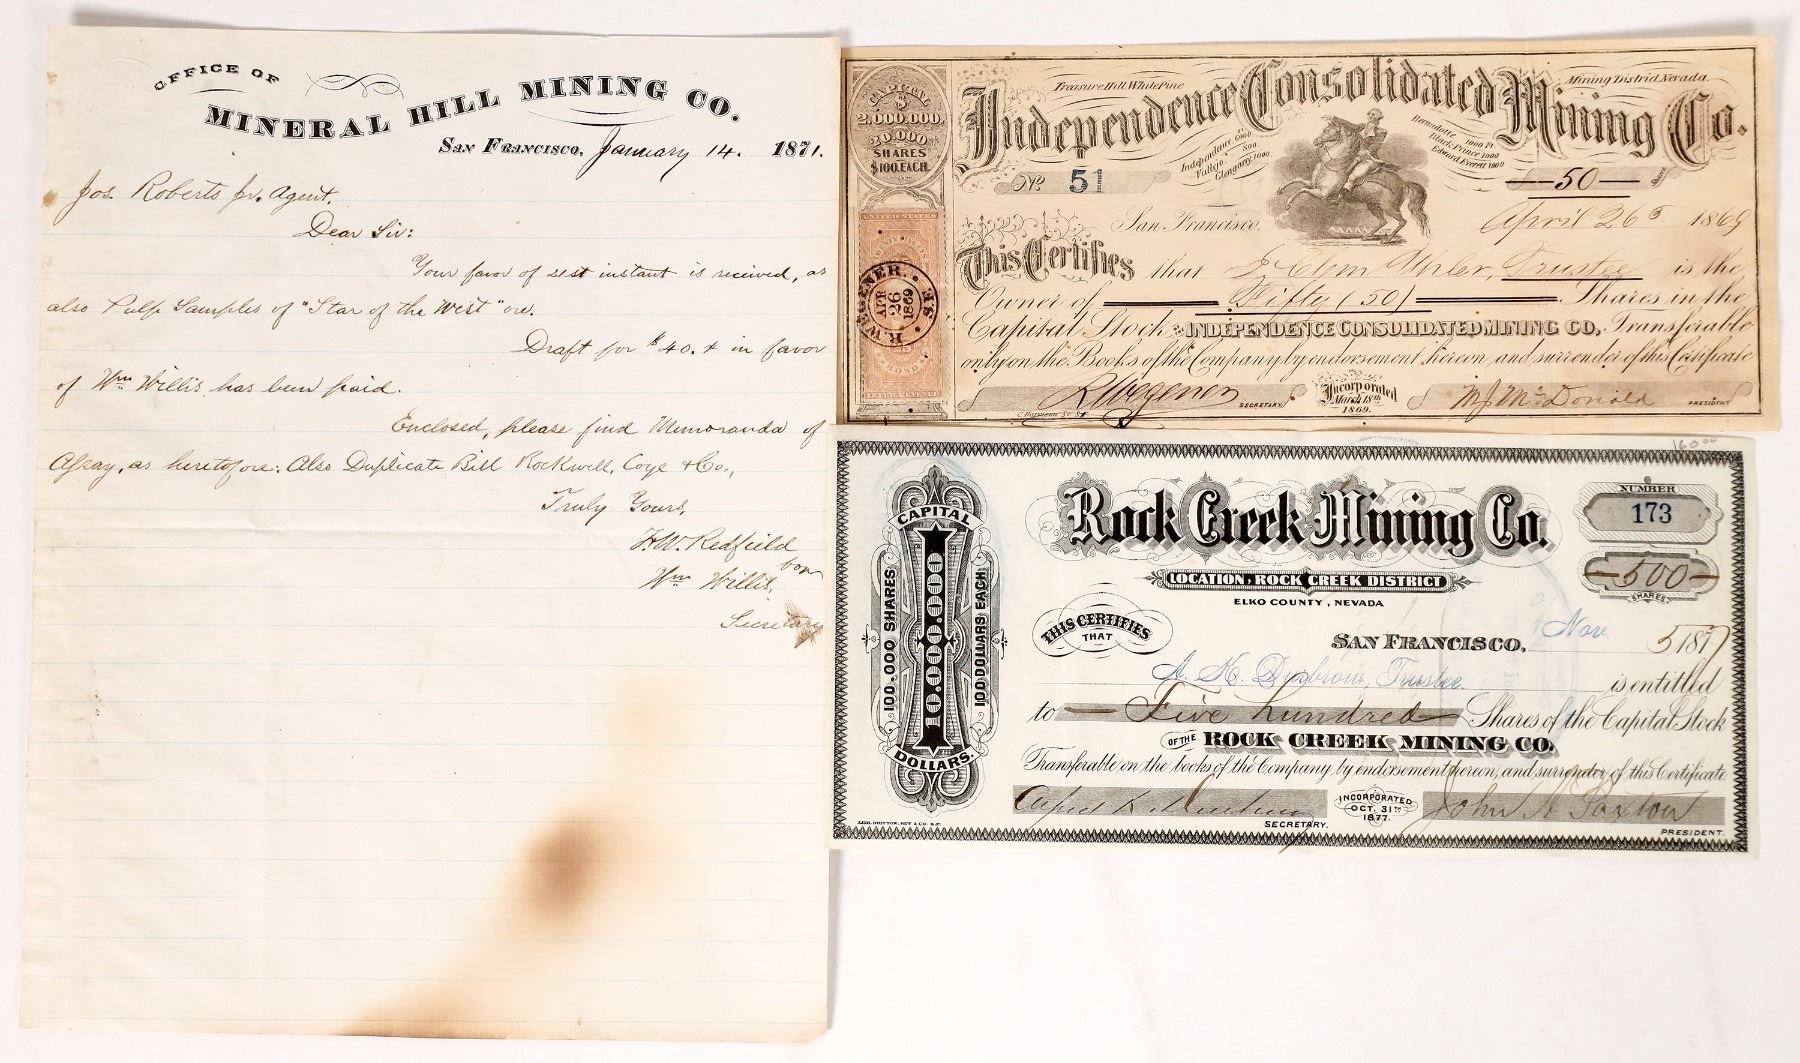 OFFICE OF
MINERAL HILL MINING CO.
San Francisco, January 14. 1871.
Jos. Roberts Jr. Agent.
Dear Sir:
Your favor of instant is received, as
also Pulp Samples of "Star of the West" ore.
Draft for $40. in favor
of Wm Willis has been paid.
Enclosed, please find Memoranda of
Assay, as heretofore: Also Duplicate Bill Rockwell, Coye & Co.,
Truly Yours,
H.W. Redfield
for
Wm Willis,
Secretary
CAPITAL
$
2,000,000.
20,000
SHARES
$100. EACH.
Treasure Hill White Pine
Mining District Nevada.
Independence Consolidated Mining Co.
Independence 1000.
Vallejo. 800.
Glengary 1000
Bernadotte 1000 Ft.
Black Prince 1000
Edward Everett 1000
No. 51
50 Shares
San Francisco. April 26 1869
This Certifies that Trustee is the
Owner of Fifty (50) Shares in the
Capital Stock of INDEPENDENCE CONSOLIDATED MINING CO. Transferable
only on the Books of the Company by endorsement hereon and surrender of this Certificate
R Wegener SECRETARY.
Incorporated
March 18th
1869.
M J McDonald PRESIDENT
UNITED STATES
R. WEGENER.
APR
26
1869
160.00
CAPITAL
10.000.000
DOLLARS.
100.000 SHARES
100 DOLLARS EACH
Rock Creek Mining Co.
NUMBER
173
LOCATION, ROCK CREEK DISTRICT
ELKO COUNTY, NEVADA
500
SHARES
THIS CERTIFIES
THAT
SAN FRANCISCO, Nov 5 1877
A. K. Durbrow, Trustee. is entitled
to Five hundred Shares of the Capital Stock
OF THE ROCK CREEK MINING CO.
Transferable on the books of the Company by endorsement hereon, and surrender of this Certificate
Alfred K. Durbrow SECRETARY.
INCORPORATED
OCT. 31TH
1877.
PRESIDENT.